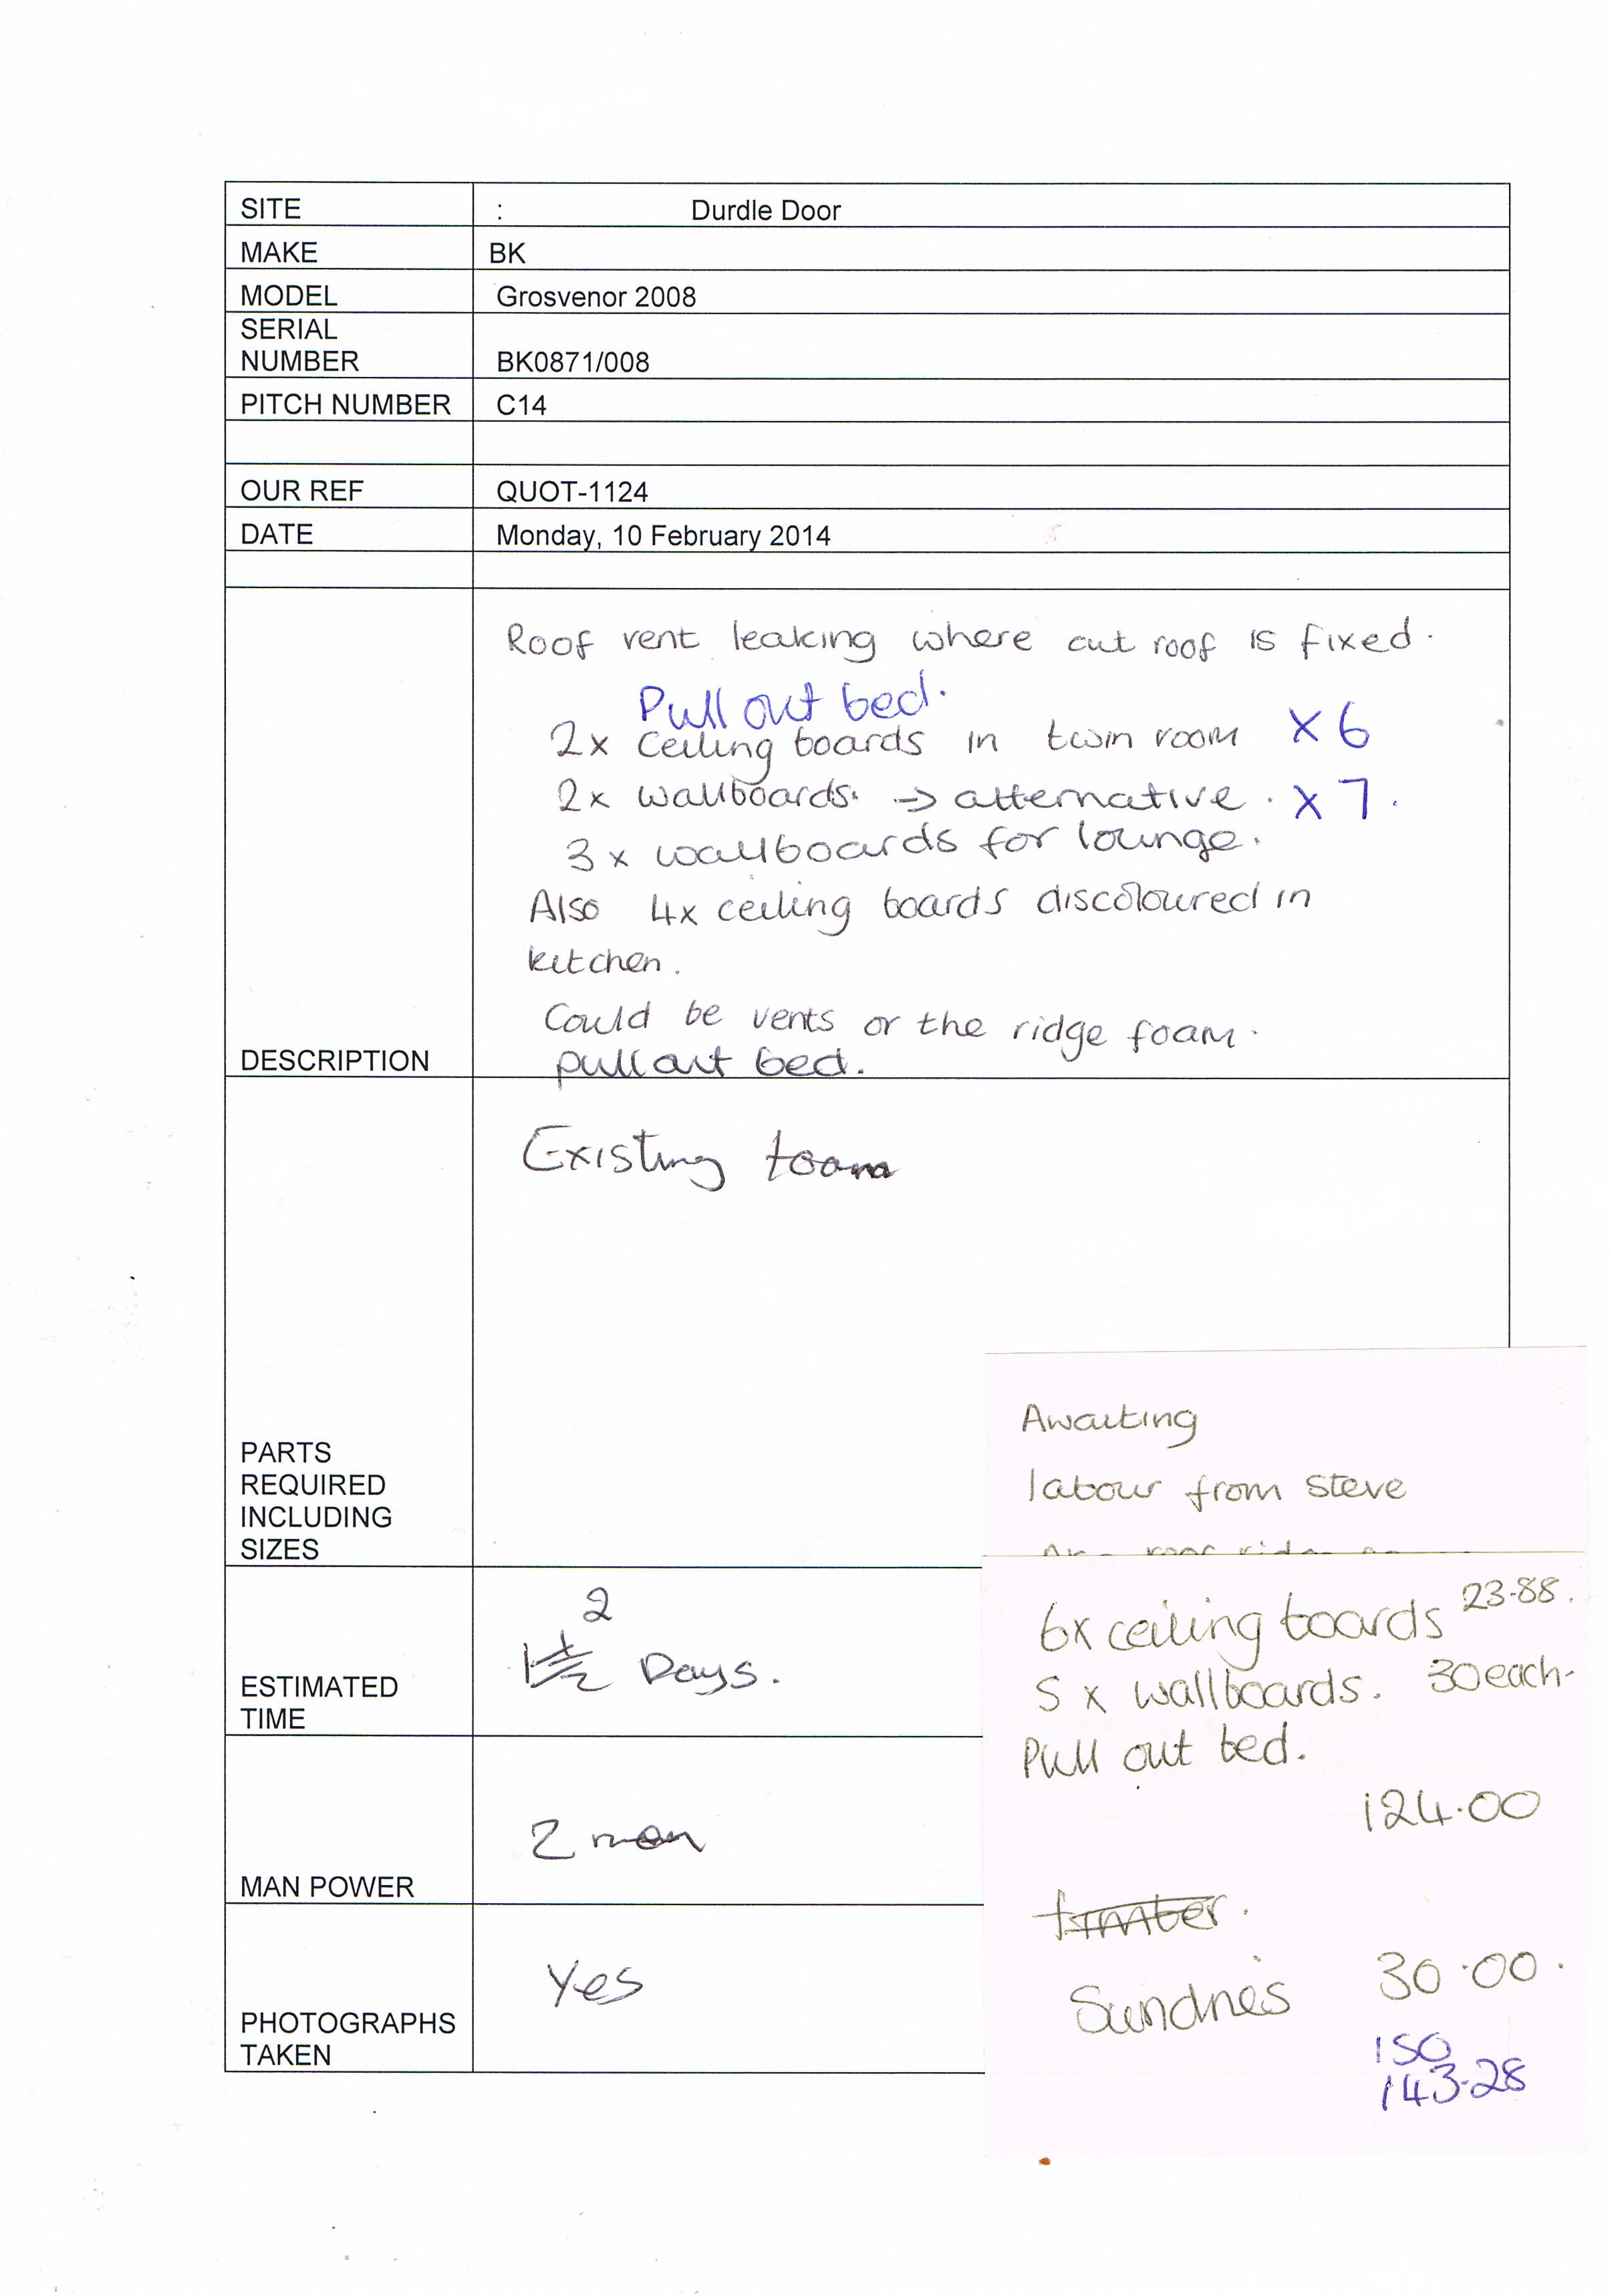 SITE : Durdle Door
MAKE BK
MODEL Grosvenor 2008
SERIAL
NUMBER BK0871/008
PITCH NUMBER C14
OUR REF QUOT-1124
DATE Monday, 10 February 2014
Roof vent leaking where cut roof is fixed.
Pull out bed.
2x ceiling boards in twin room x6
2x wallboards. → alternative. x7.
3x wallboards for lounge.
Also 4x ceiling boards discoloured in
kitchen.
Could be vents or the ridge foam.
DESCRIPTION pull out bed.
Existing foam
PARTS
REQUIRED
INCLUDING
SIZES
Awaiting
labour from Steve
2
ESTIMATED
TIME
1½ Days.
6x ceiling boards 23-88.
5 x wallboards. 30 each-
Pull out bed.
124.00
MAN POWER 2 men
timber.
Sundries 30.00.
150
143-28
PHOTOGRAPHS
TAKEN
Yes